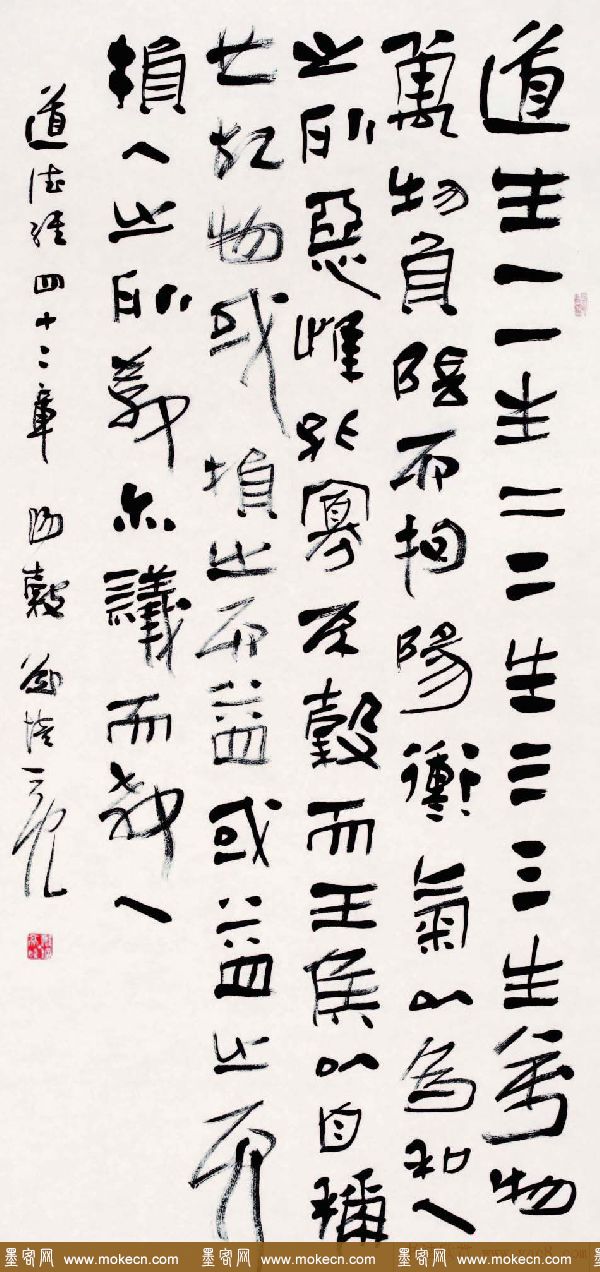 道生一一生二二生三三生萬物
萬物負陰而抱陽衝氣以為和人
之所惡唯孤寡不穀而王侯以自稱
也故物或損之而益或益之而
損人之所教亦議而教人
道德經四十二章
墨客网 www.mokecn.com 墨客网 www.mokecn.com 墨客网 www.mokecn.com